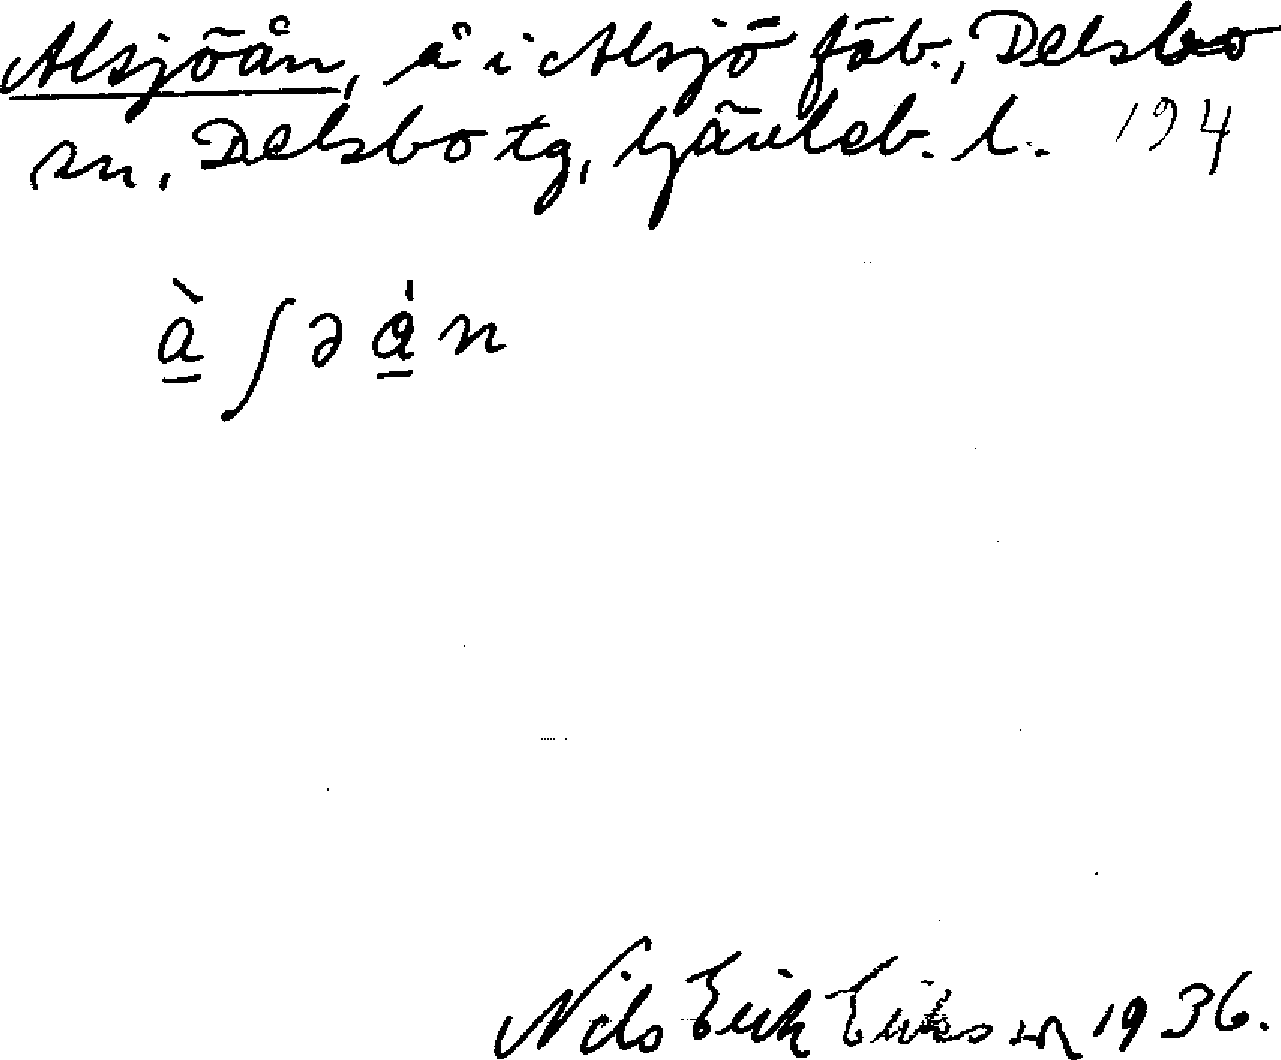 Alsjöån, å i Alsjö fäb., Delsbo
sn, Delsbo tg, Gävleb. l. 194
à̱ ʃ ə å̱ n
Nils Erik Eriksson 1936.